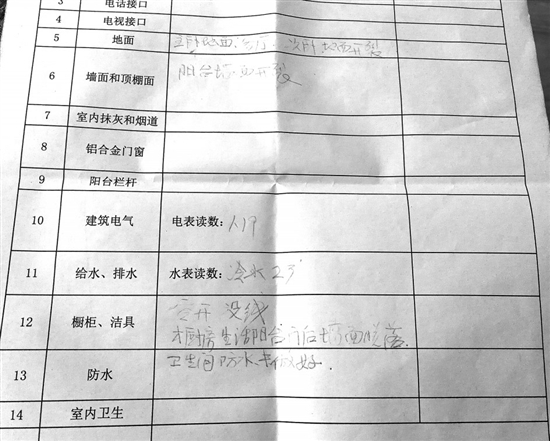 3 电话接口
4 电视接口
5 地面 主卧地面、客厅、次卧地面开裂
6 墙面和顶棚面 阳台墙面开裂
7 室内抹灰和烟道
8 铝合金门窗
9 阳台栏杆
10 建筑电气 电表读数:
11 给水、排水 水表读数: 冷水23
12 橱柜、洁具 空开 没线
厨房生活阳台 后墙面脱落
13 防水 卫生间防水未做好.
14 室内卫生